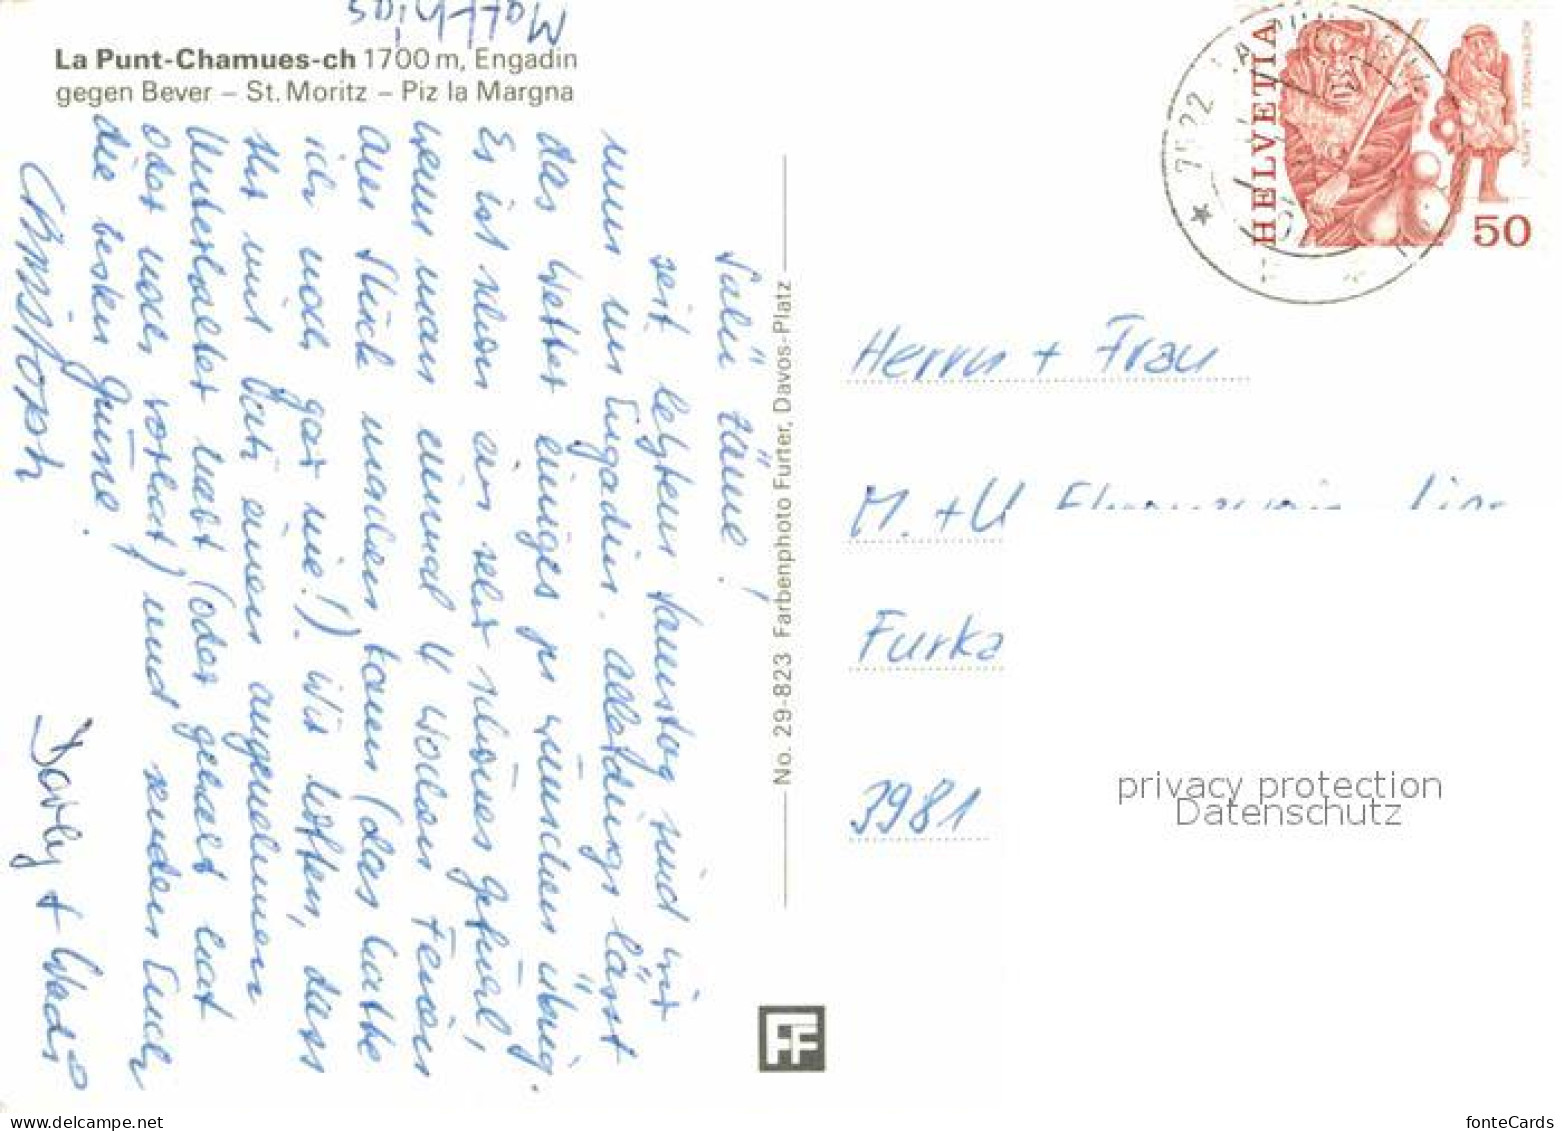 La Punt-Chamues-ch 1700 m, Engadin
gegen Bever – St. Moritz – Piz la Margna
Salü zäme!
seit letztem Samstag sind wir
nun im Engadin. Allerdings lässt
das Wetter einiges zu wünschen übrig.
Es ist schon ein sehr schönes Gefühl,
wenn man einmal 4 Wochen Ferien
am Stück machen kann (das hatte
ich noch gar nie!). Wir hoffen, dass
Ihr mit Vati einen angenehmen
Unterhalter habt (oder gehabt habt
oder noch vorhat) und senden Euch
die besten Grüsse!
Christoph
Dorly +
Matthias
No. 29-823 Farbenphoto Furter, Davos-Platz
FF
HELVETIA
50
7522
Herrn + Frau
M. + U
Furka
3981
privacy protection
Datenschutz
fonteCards